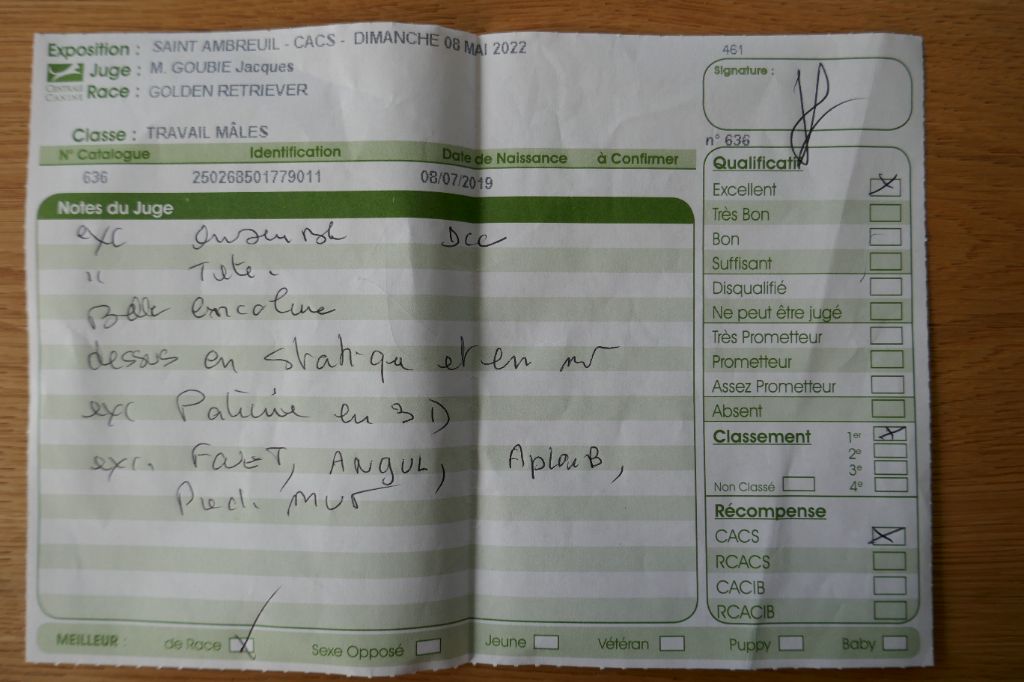 Exposition : SAINT AMBREUIL - CACS - DIMANCHE 08 MAI 2022
461
CENTRALE CANINE
Juge : M. GOUBIE Jacques
Signature :
Race : GOLDEN RETRIEVER
Classe : TRAVAIL MÂLES
n° 636
N° Catalogue Identification Date de Naissance à Confirmer
636 250268501779011 08/07/2019
Notes du Juge
exc ensemble Dcc
" Tete.
Belle encolure
dessus en statique et en mvt
exc Poitrine en 3 D
exc. FOUET, ANGUL, Aplomb,
Pied. mvt
Qualificatif
Excellent
Très Bon
Bon
Suffisant
Disqualifié
Ne peut être jugé
Très Prometteur
Prometteur
Assez Prometteur
Absent
Classement 1er
2e
3e
Non Classé 4e
Récompense
CACS
RCACS
CACIB
RCACIB
MEILLEUR : de Race Sexe Opposé Jeune Vétéran Puppy Baby